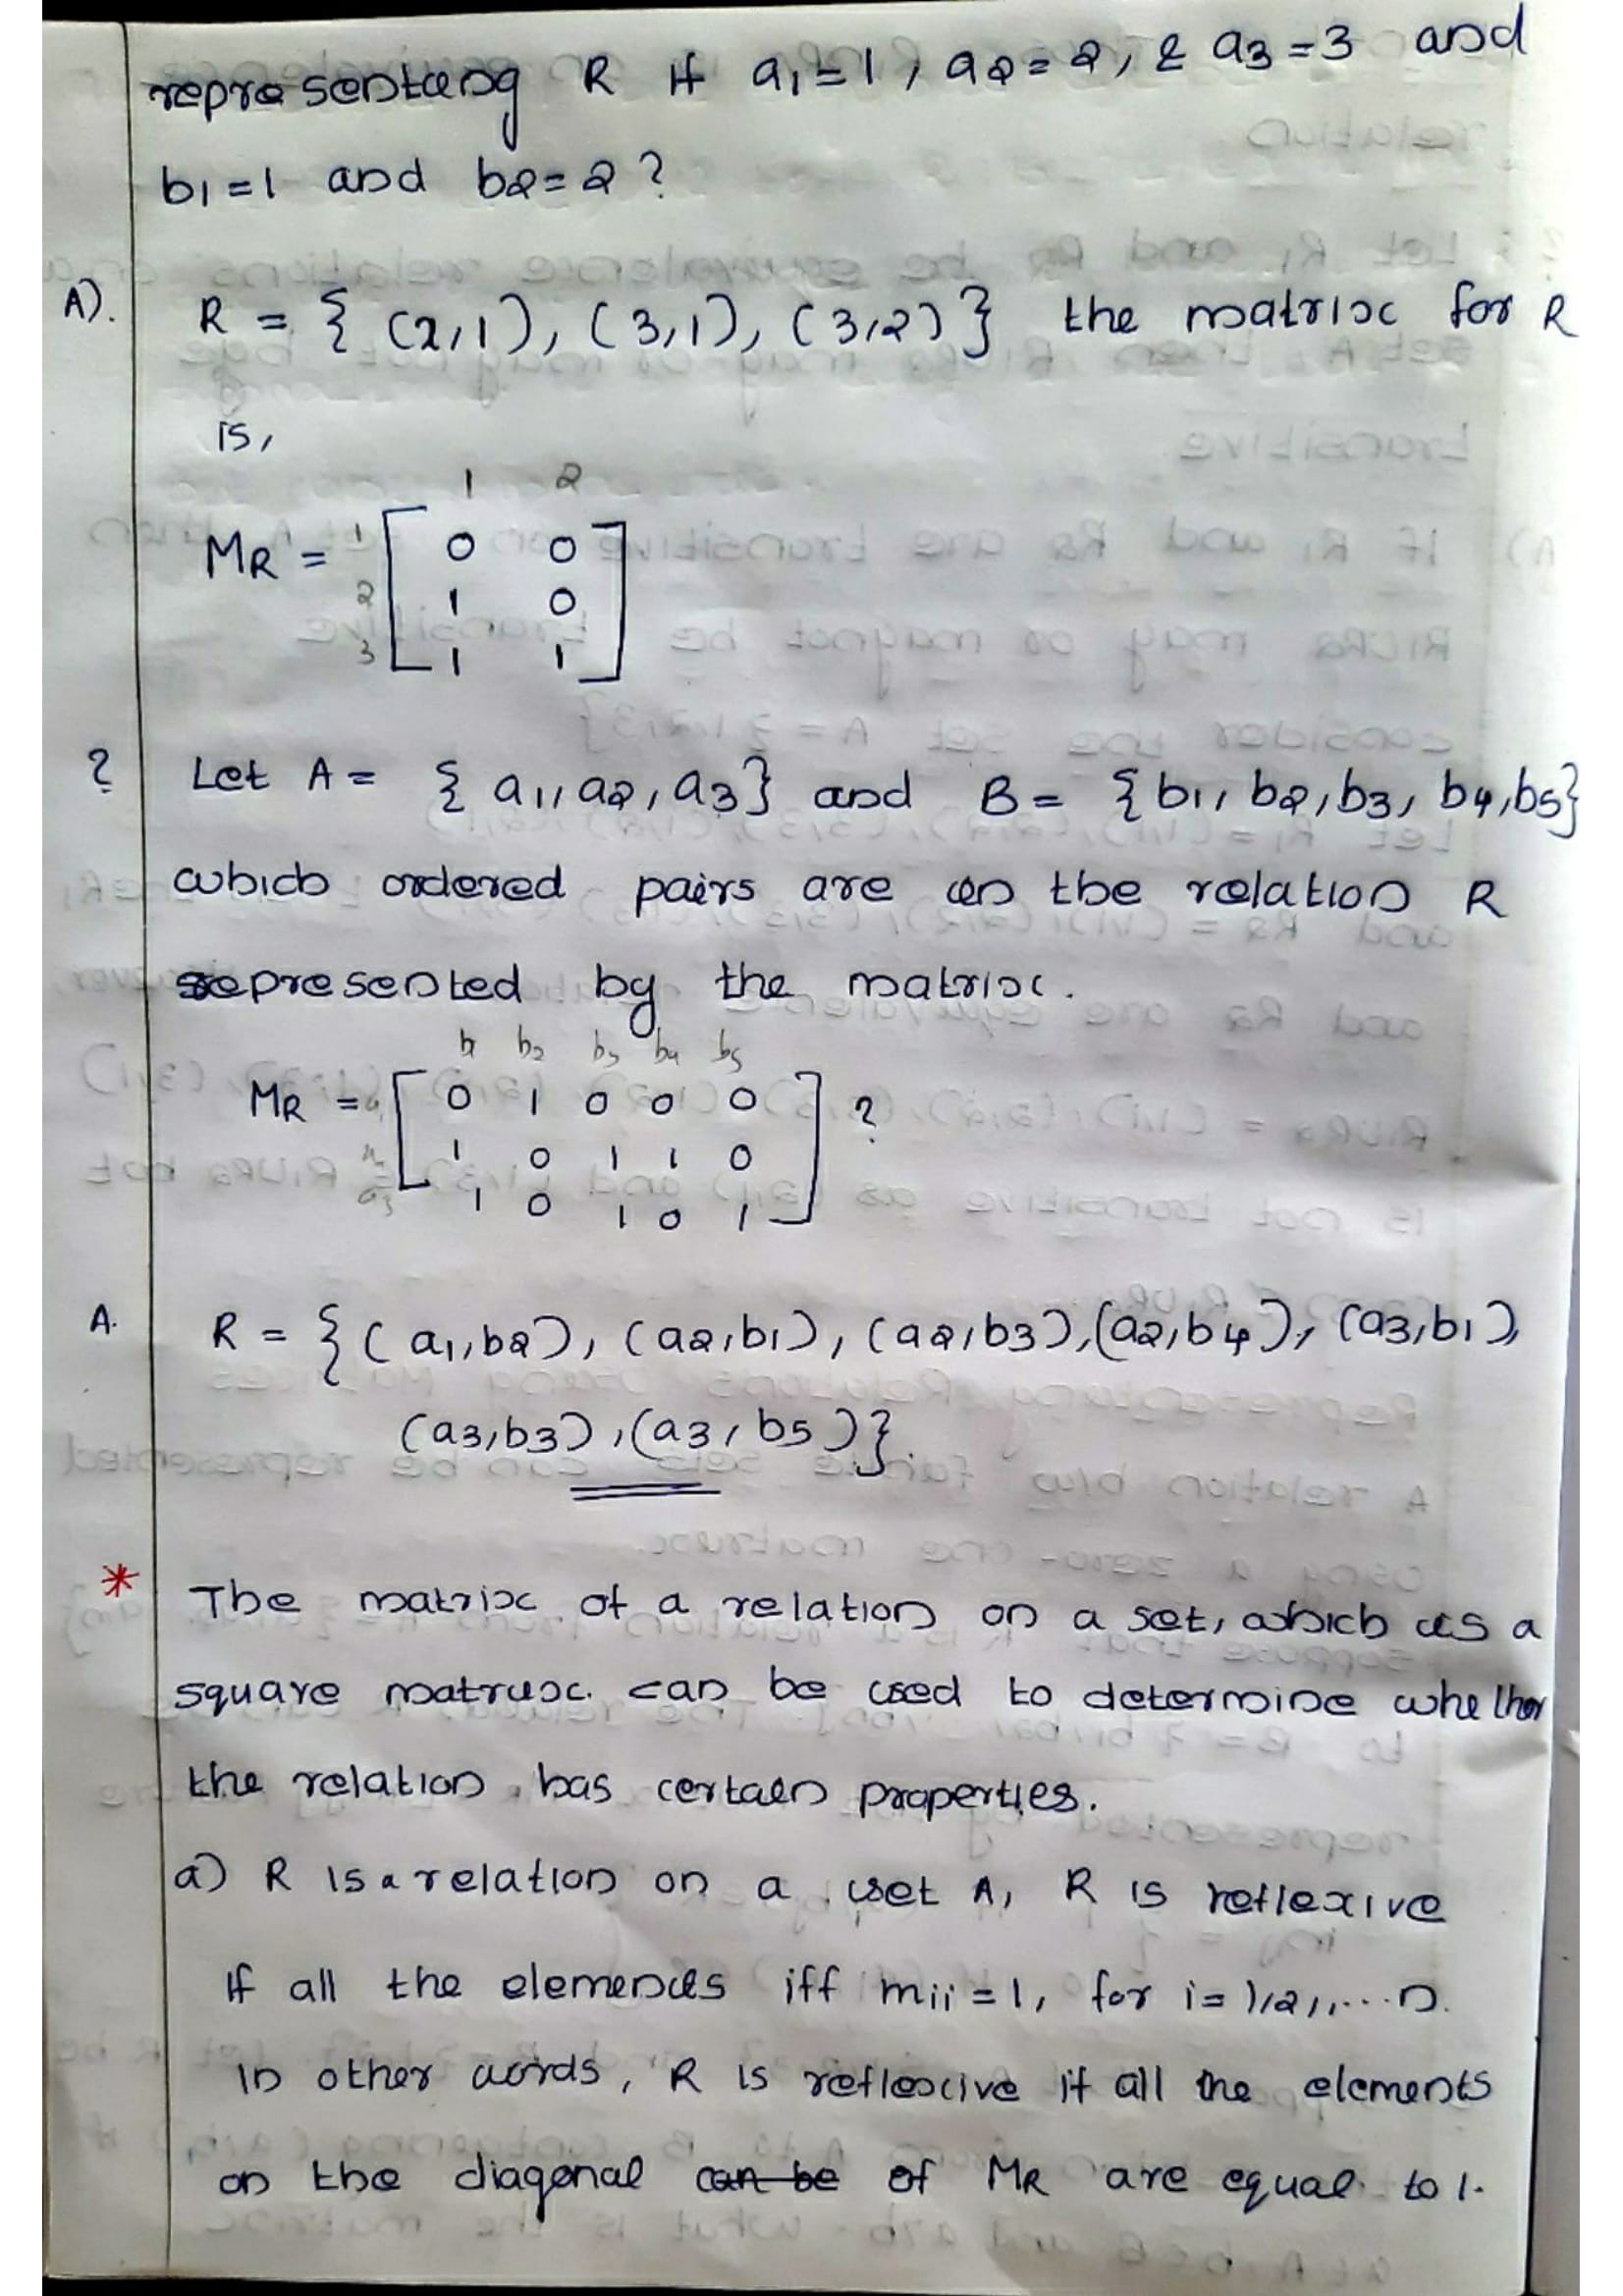 representing R if a1=1, a2=2, & a3=3 and
b1=1 and b2=2?
A). R = { (2,1), (3,1), (3,2) } the matrix for R
is,
1 2
MR = 1 [ 0 0 ]
2 1 0
3 1 1
? Let A = { a1, a2, a3 } and B = { b1, b2, b3, b4, b5 }
which ordered pairs are in the relation R
represented by the matrix.
b1 b2 b3 b4 b5
MR = a1 [ 0 1 0 0 0 ] ?
a2 1 0 1 1 0
a3 1 0 1 0 1
A. R = { (a1,b2), (a2,b1), (a2,b3), (a2,b4), (a3,b1),
(a3,b3), (a3,b5) }.
* The matrix of a relation on a set, which is a
square matrix. can be used to determine whether
the relation has certain properties.
a) R is a relation on a set A, R is reflexive
if all the elements iff mii = 1, for i = 1,2,,....n.
In other words, R is reflexive if all the elements
on the diagonal can be of MR are equal to 1.